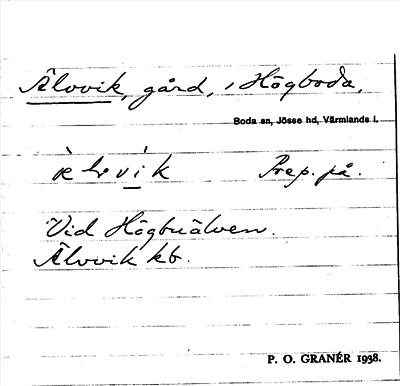 Älvvik, gård, i Högboda.
Boda sn, Jösse hd, Värmlands l.
Prep. på.
Vid Högbuälven.
Älvvik kb.
P. O. GRANÉR 1938.